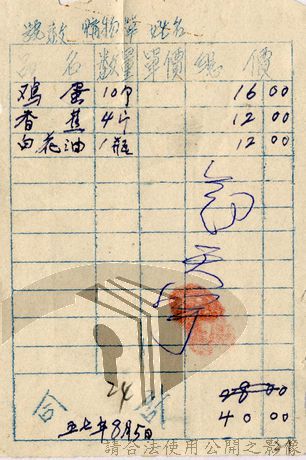 號數 購物單 姓名
品名 數量 單價 總價
鸡蛋 10個 16 00
香蕉 4斤 12 00
白花油 1瓶 12 00
24
28 00
合 40 00
五七年8月5日
請合法使用公開之影像